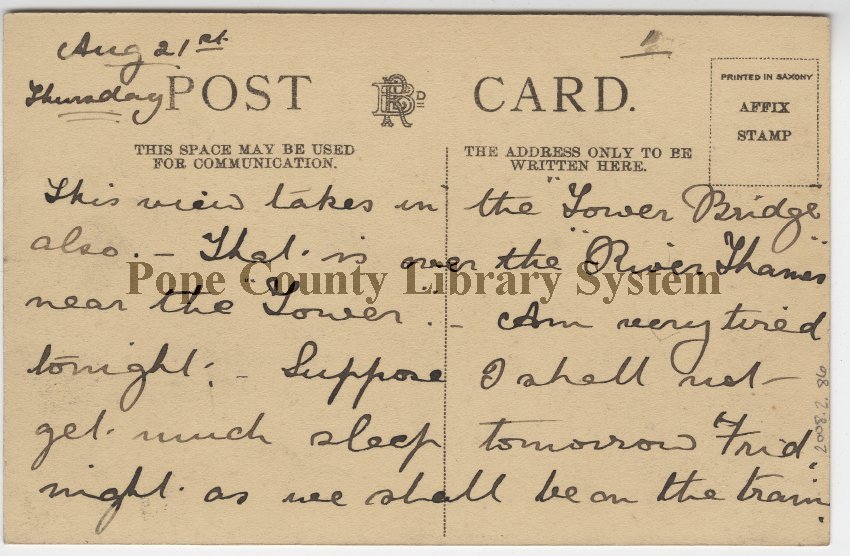 Aug 21st
Thursday
POST CARD.
BRR LD
PRINTED IN SAXONY
AFFIX
STAMP
THIS SPACE MAY BE USED
FOR COMMUNICATION.
THE ADDRESS ONLY TO BE
WRITTEN HERE.
This view takes in the "Tower Bridge"
also. – That is over the "River Thames"
near the "Tower". – Am very tired
tonight. – Suppose I shall not
get much sleep tomorrow Frid.
night as we shall be on the train.
Pope County Library System
2008.2.86